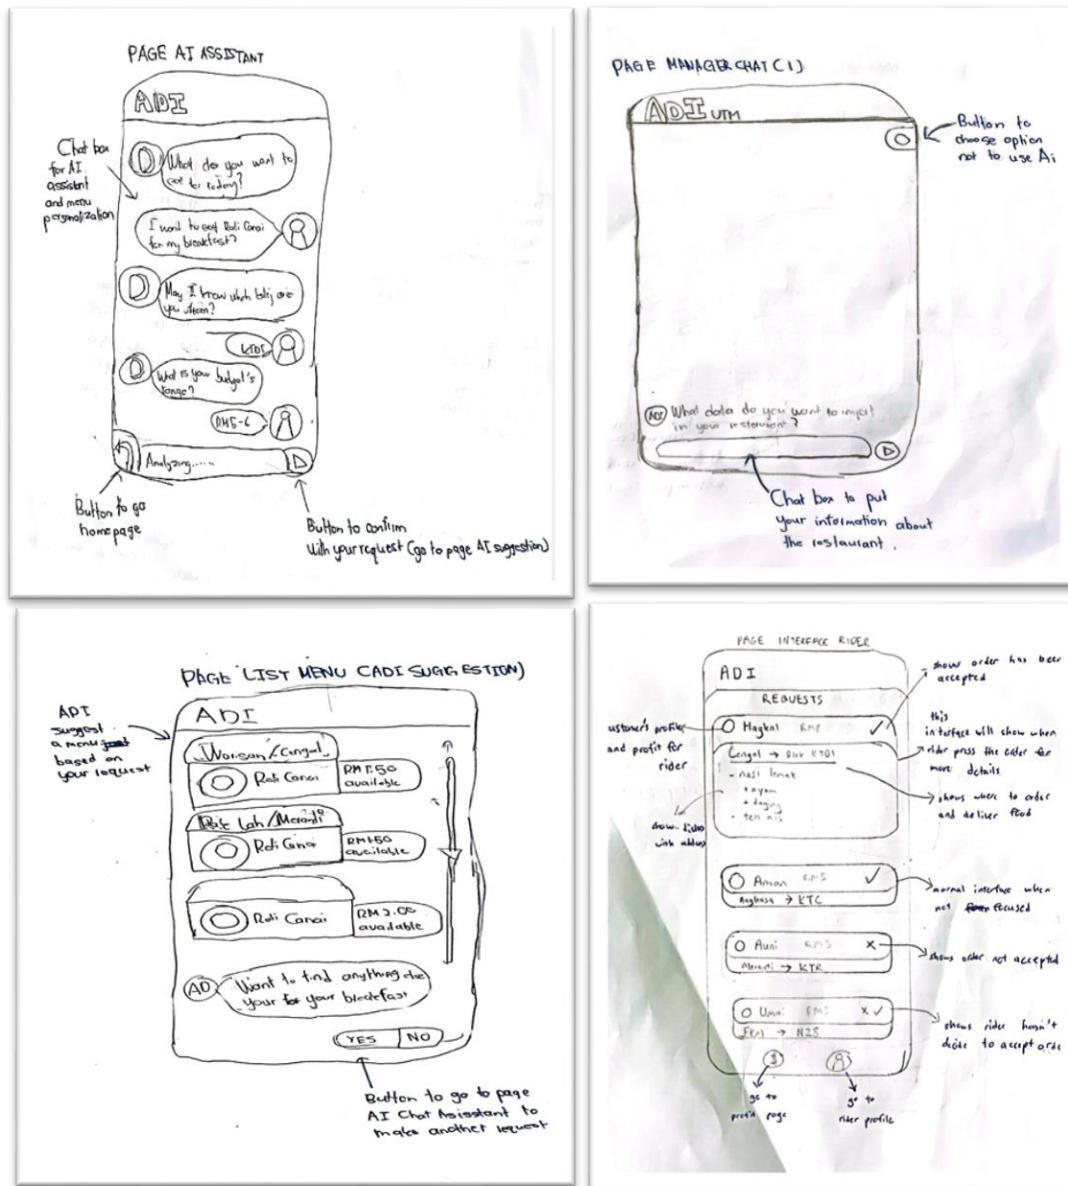 PAGE AI ASSISTANT
ADI
Chat box
for AI
assistant
and menu
personalization
What do you want to
eat for today?
I want to eat Roti Canai
for my breakfast?
May I know which kolej are
you utean?
KTDI
What is your budget's
range?
RM5-6
Analyzing......
Button to go
homepage
Button to confirm
with your request (go to page AI suggestion)
PAGE MANAGER CHAT (1)
ADI UTM
Button to
choose option
not to use Ai
ADI What data do you want to
in your restaurant?
Chat box to put
your information about
the restaurant.
PAGE LIST MENU CADI SUGGESTION)
ADI
suggest
a menu
based on
your request
ADI
Warisan/Cengal
Roti Canai
RM1.50
available
Lah/Meranti
Roti Canai
RM1.50
available
Roti Canai
RM2.00
available
AD
Want to find anything else
your for your breakfast
YES
NO
Button to go to page
AI Chat Assistant to
make another request
PAGE INTERFACE RIDER
ADI
REQUESTS
shows order has been
accepted
ustomer's profile
and profit for
rider
Haykal
✓
this
interface will show when
rider press the order for
more details
Cengal → KTDI
- nasi lemak
+ ayam
+ daging
- teh ais
shows where to order
and deliver food
show dishes
with
Aman RM5 ✓
Angkasa → KTC
normal interface when
not focused
Auni RM3 x
Meranti → KTR
shows order not accepted
RM3 x ✓
→ N28
shows rider hasn't
decide to accept orde
$
go to
profit page
go to
rider profile